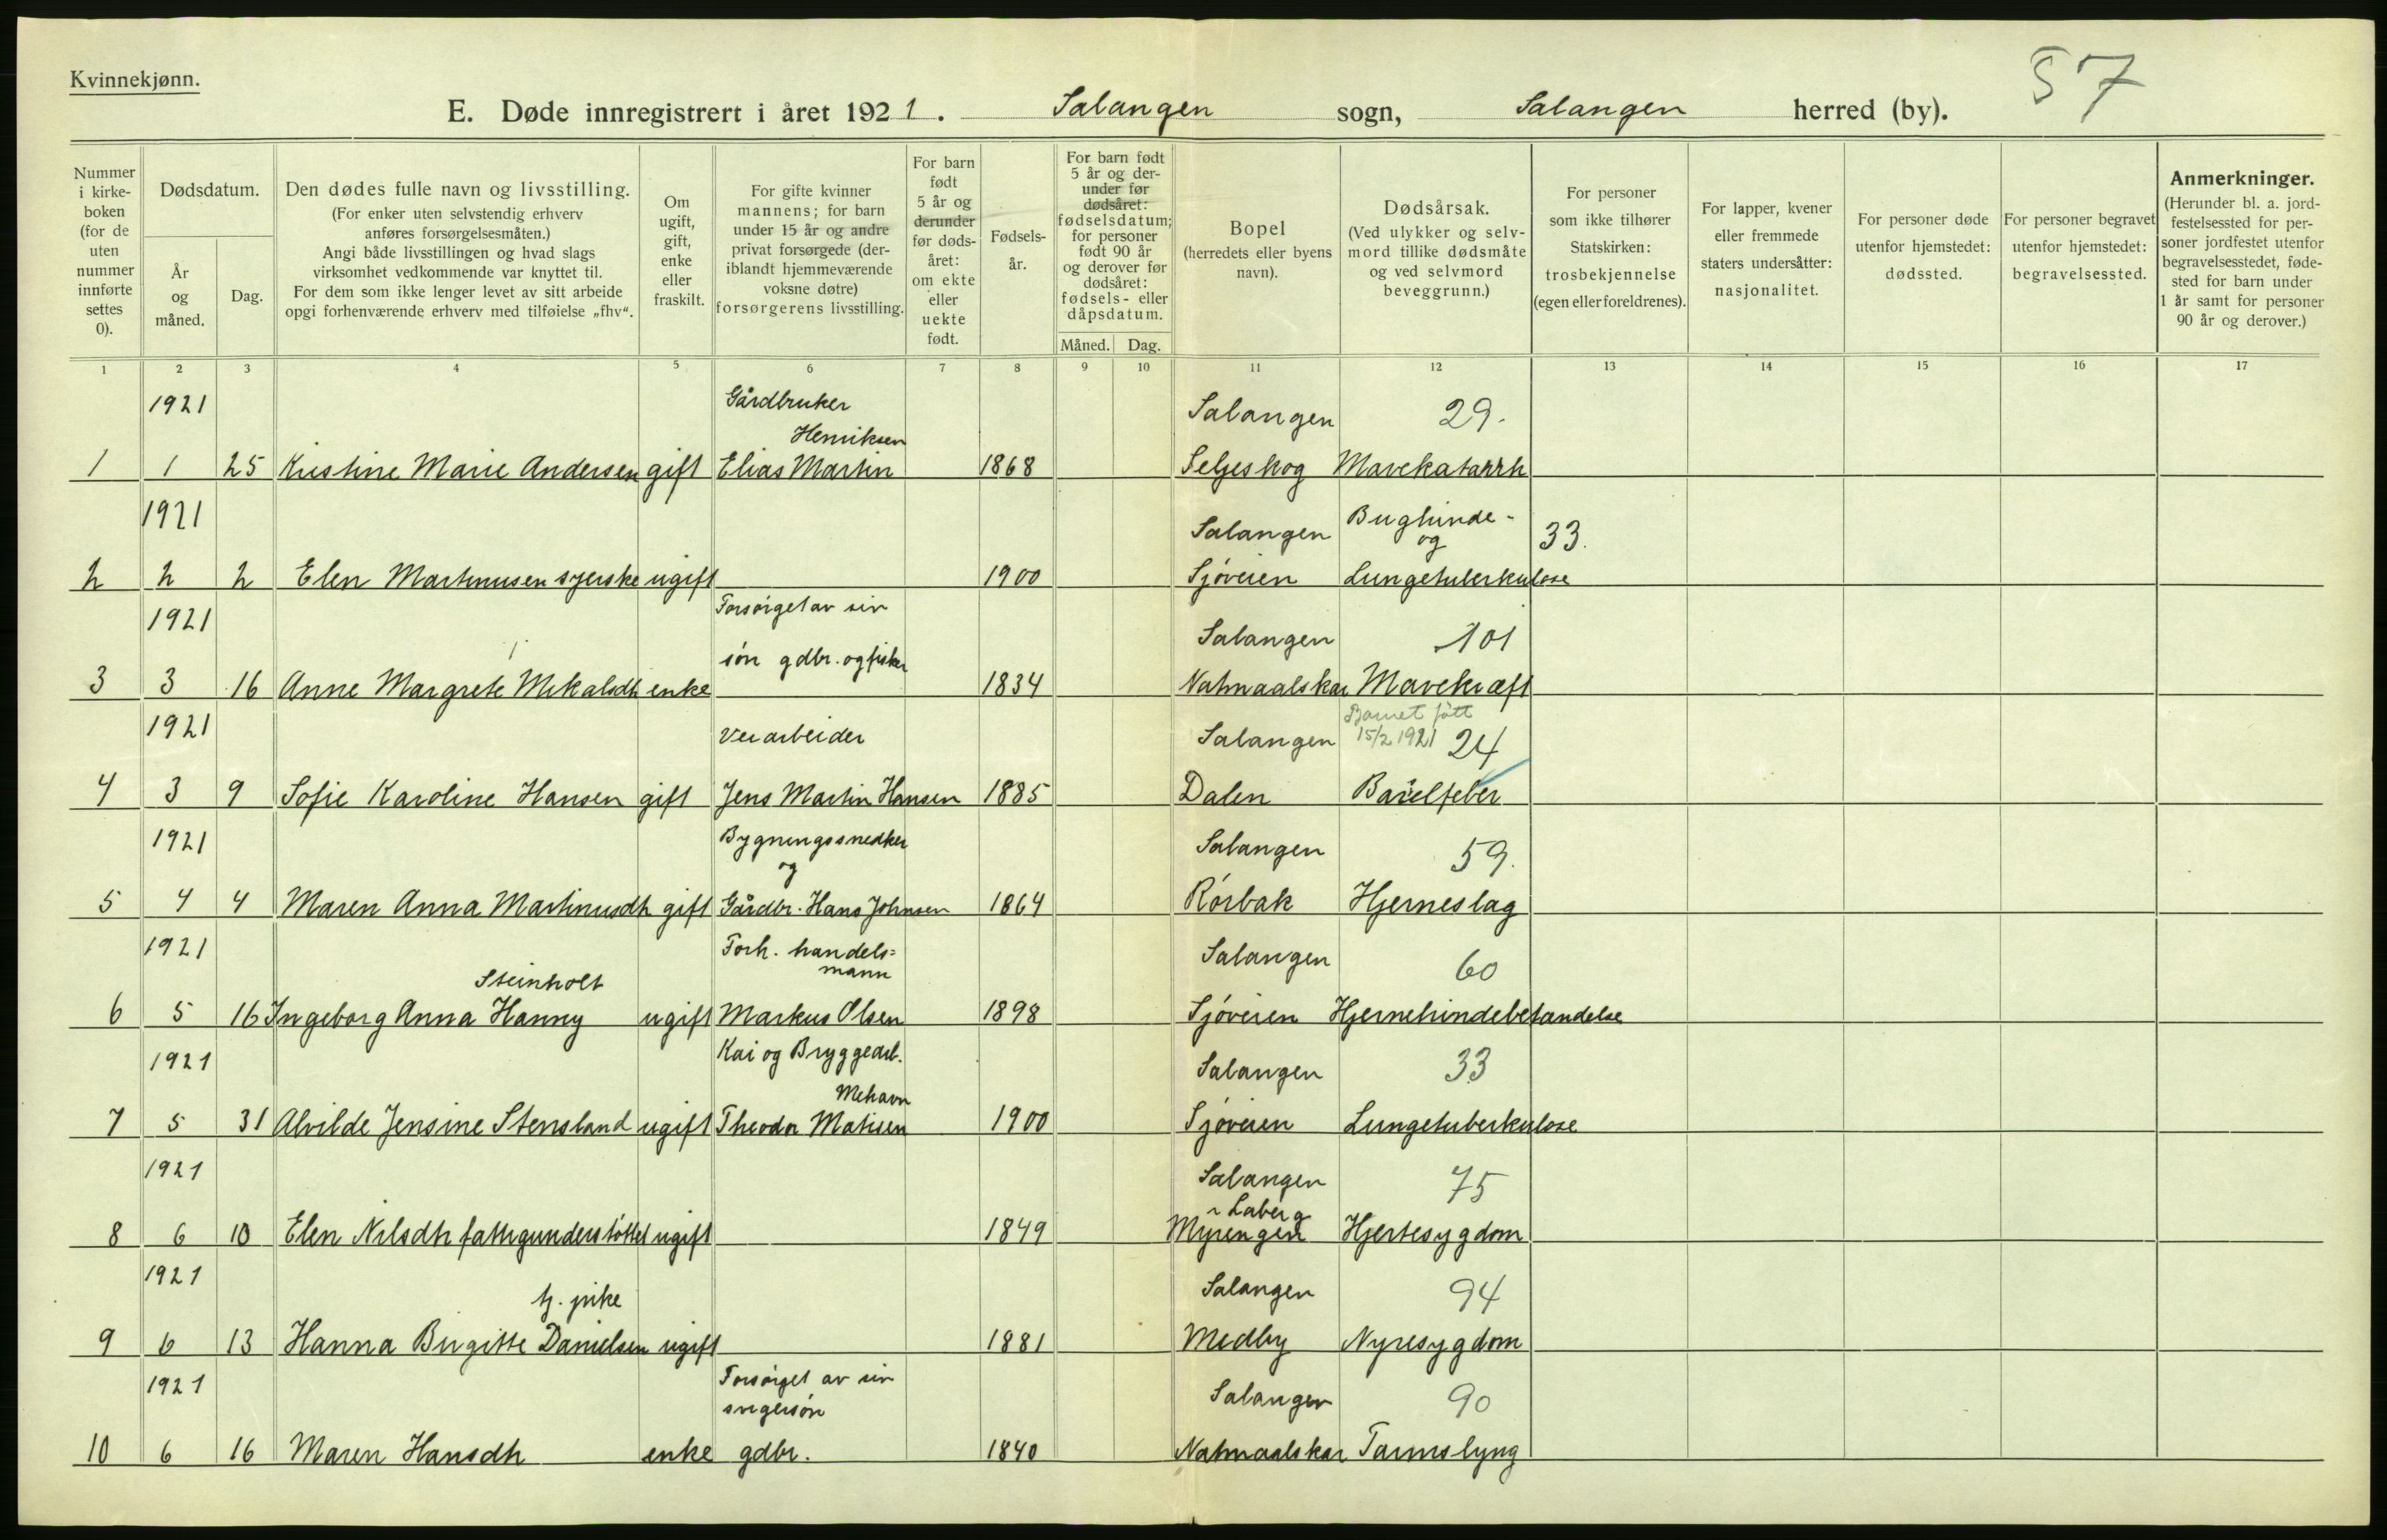 Kvinnekjønn.
57
E. Døde innregistrert i året 1921. Salangen sogn, Salangen herred (by).
Nummer i kirke-boken (for de uten nummer innførte settes 0).
Dødsdatum.
År og måned.
Dag.
Den dødes fulle navn og livsstilling.
(For enker uten selvstendig erhverv anføres forsørgelsesmåten.)
Angi både livsstillingen og hvad slags virksomhet vedkommende var knyttet til.
For dem som ikke lenger levet av sitt arbeide opgi forhenværende erhverv med tilføielse „fhv“.
Om ugift, gift, enke eller fraskilt.
For gifte kvinner mannens; for barn under 15 år og andre privat forsørgede (deriblandt hjemmeværende voksne døtre) forsørgerens livsstilling.
For barn født 5 år og derunder før dødsåret: om ekte eller uekte født.
Fødselsår.
For barn født 5 år og derunder før dødsåret: fødselsdatum; for personer født 90 år og derover før dødsåret: fødsels- eller dåpsdatum.
Måned. Dag.
Bopel (herredets eller byens navn).
Dødsårsak.
(Ved ulykker og selvmord tillike dødsmåte og ved selvmord beveggrunn.)
For personer som ikke tilhører Statskirken: trosbekjennelse (egen eller foreldrenes).
For lapper, kvener eller fremmede staters undersåtter: nasjonalitet.
For personer døde utenfor hjemstedet: dødssted.
For personer begravet utenfor hjemstedet: begravelsessted.
Anmerkninger.
(Herunder bl. a. jordfestelsessted for personer jordfestet utenfor begravelsesstedet, fødested for barn under 1 år samt for personer 90 år og derover.)
1 2 3 4 5 6 7 8 9 10 11 12 13 14 15 16 17
1921 Gårdbruker Salangen 29.
Henriksen
1 1 25 Kristine Marie Andersen gift Elias Martin 1868 Seljeskog Mavekatarrh
1921 Salangen Bughinde- og 33.
2 2 2 Elen Martinusen syerske ugift 1900 Sjøveien Lungetuberkulose
1921 Forsørget av sin Salangen 101
søn gdbr. og fisker
3 3 16 Anne Margrete Mikalsdh enke 1834 Natmaalskar Mavekræft
Barnet født
1921 Veiarbeider Salangen 15/2 1921 24
4 3 9 Sofie Karoline Hansen gift Jens Martin Hansen 1885 Dalen Barselfeber
1921 Bygningssnedker Salangen 59.
og
5 4 4 Maren Anna Martinusdh gift Gårdbr. Hans Johnsen 1864 Rørbak Hjerneslag
1921 Forh. handels= Salangen 60
Steinholt mann
6 5 16 Ingeborg Anna Hanny ugift Markus Olsen 1898 Sjøveien Hjernehindebetændelse
1921 Kai og Bryggearb. Salangen 33
Mehavn
7 5 31 Alvilde Jensine Stensland ugift Theodor Matisen 1900 Sjøveien Lungetuberkulose
1921 Salangen 75
Laberg
8 6 10 Elen Nilsdh fattigunderstøttet ugift 1849 Myrengen Hjertesygdom
1921 Salangen 94
tj. pike
9 6 13 Hanna Birgitte Danielsen ugift 1881 Medby Nyresygdom
1921 Forsørget av sin Salangen 90
svigersøn
10 6 16 Maren Hansdh enke gdbr. 1840 Natmaalskar Tarmslyng